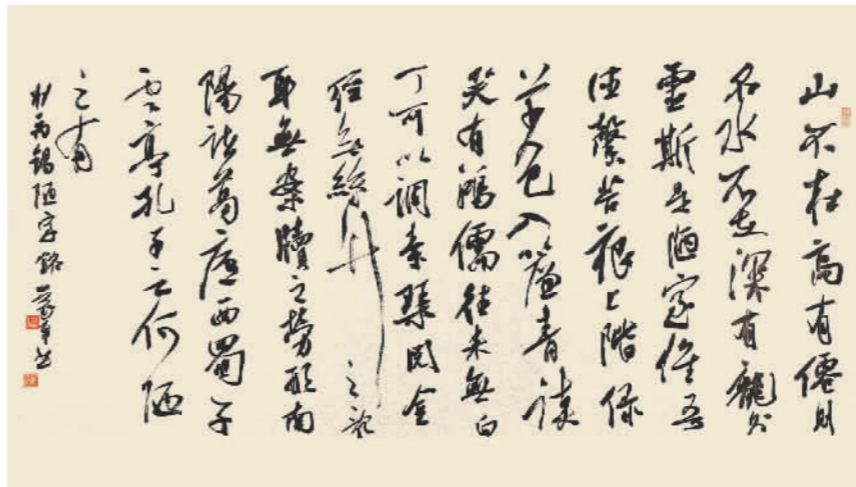 山不在高有僊則
名水不在深有龍則
靈斯是陋室惟吾
德馨苔痕上階緑
草色入簾青談
笑有鴻儒往来無白
丁可以調素琴閲金
經無絲竹之亂
耳無案牘之勞形南
陽諸葛廬西蜀子
雲亭孔子云何陋
之有
刘禹錫陋室銘